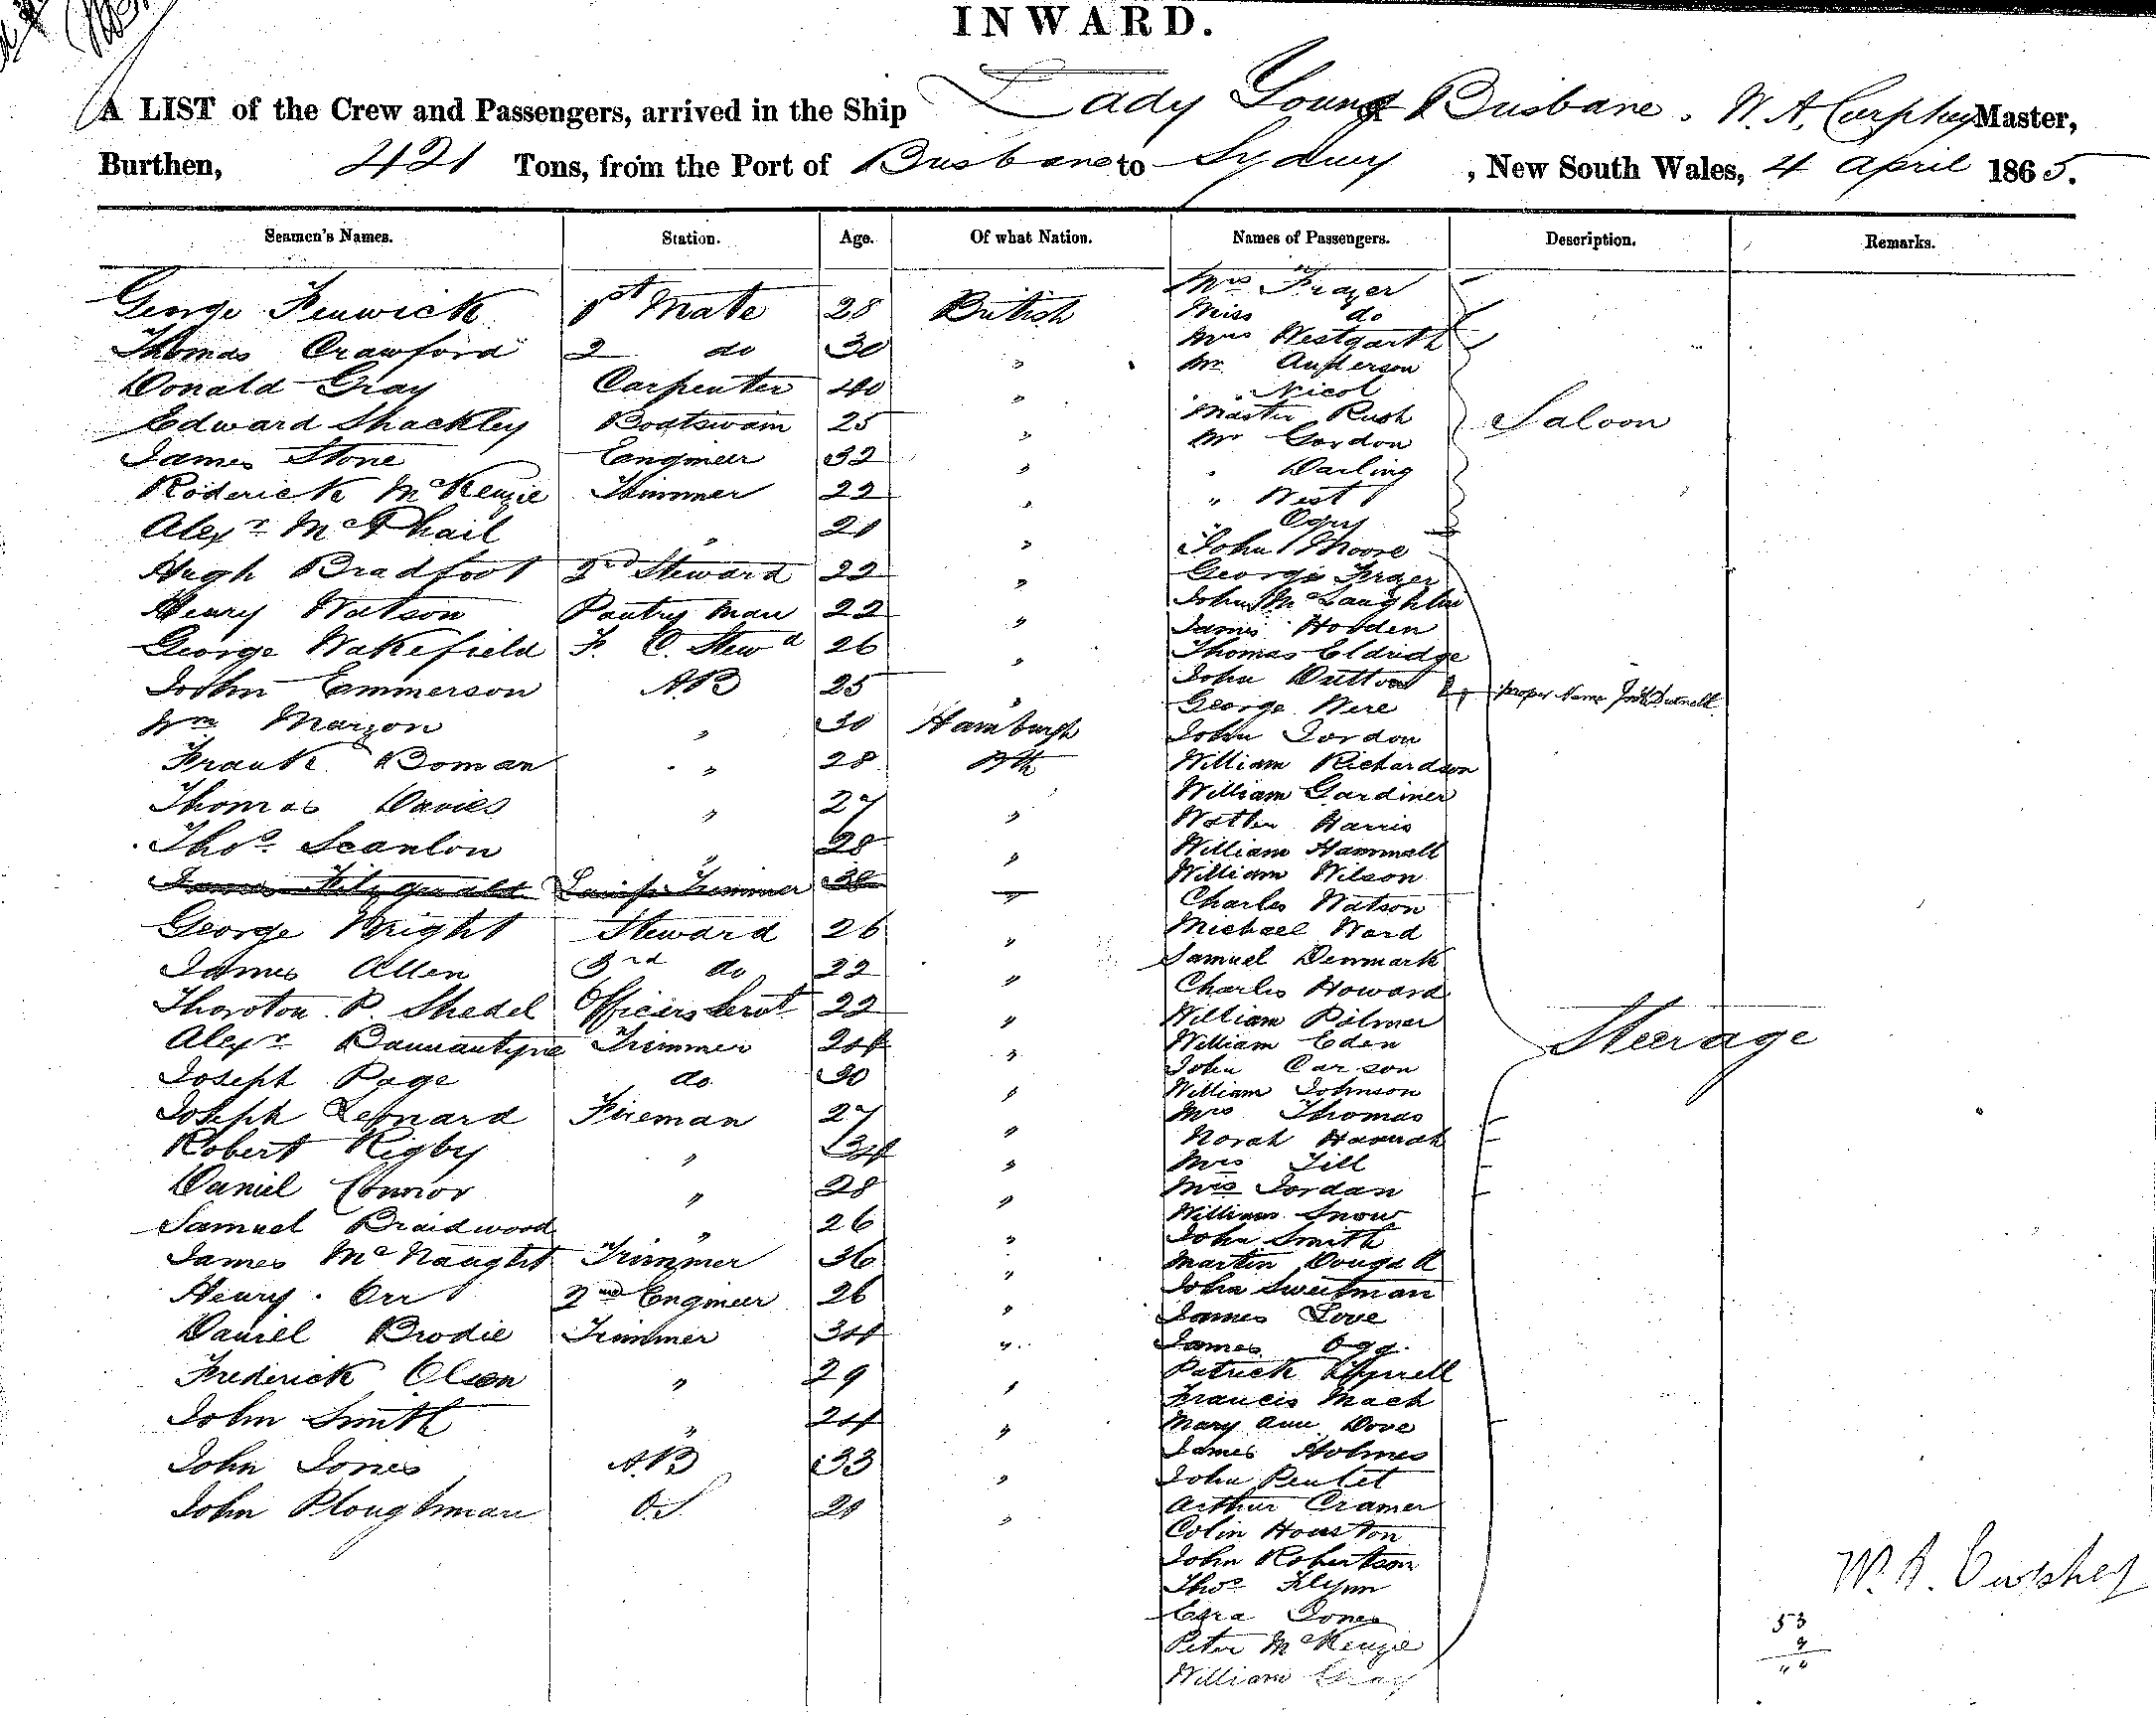 INWARD.
A LIST of the Crew and Passengers, arrived in the Ship Lady Young of Brisbane. W. A. Curphey Master,
Burthen, 421 Tons, from the Port of Brisbane to Sydney, New South Wales, 4 April 1865.
Seamen's Names. Station. Age. Of what Nation. Names of Passengers. Description. Remarks.
George Fenwick 1st Mate 28 British
Thomas Crawford 2 do 30 "
Donald Gray Carpenter 40 "
Edward Shackley Boatswain 25 "
James Stone Engineer 32 "
Roderick McKenzie Trimmer 22 "
Alexr McPhail " 21 "
Hugh Bradfoot 2nd Steward 22 "
Henry Watson Pantry Man 22 "
George Wakefield F. C. Stewd 26 "
John Emmerson AB 25 "
Wm Marzon " 30 Hamburgh
Frank Boman " 28
Thomas Davies " 27 "
Thos. Scanlon " 28 "
James Fitzgerald Lamp Trimmer 38 "
George Wright Steward 26 "
James Allen 3rd do 22 "
Thoroton P. Shedel Officers Servt 22 "
Alexr Bannantyne Trimmer 24 "
Joseph Page do 30 "
Joseph Leonard Fireman 27 "
Robert Rigby " 34 "
Daniel Connor " 28 "
Samuel Braidwood " 26 "
James McNaught Trimmer 36 "
Henry Orr 2nd Engineer 26 "
Daniel Brodie Trimmer 34 "
Frederick Olsen " 29 "
John Smith " 24 "
John Jones AB 33 "
John Ploughman O.S. 20 "
Mrs Frazer
Miss do
Mrs Westgarth
Mr Anderson
" Nicol
Master Rush
Mr Gordon
" Darling
" West
"
Saloon
John Moore
George Frazer
John McLaughlin
James Hodden
Thomas Eldridge
John Dutton proper Name
George Were
John Jordon
William Richardson
William Gardiner
Walter Harris
William Hammell
William Wilson
Charles Watson
Michael Ward
Samuel Denmark
Charles Howard
William Pilmer
William Eden
John Carson
William Johnson
Mrs Thomas
Norah Hannah
Mrs Till
Mrs Jordan
William Snow
John Smith
Martin Dougall
John Sweetman
James Love
James Ogg
Patrick Tyrrell
Francis Mach
Mary Ann Dove
James Holmes
John Pentet
Arthur Cramer
Colin Houston
John Robertson
Thos Flynn
Ezra Jones
Peter McKenzie
William Gray
Steerage
W. A. Curphey
53
9